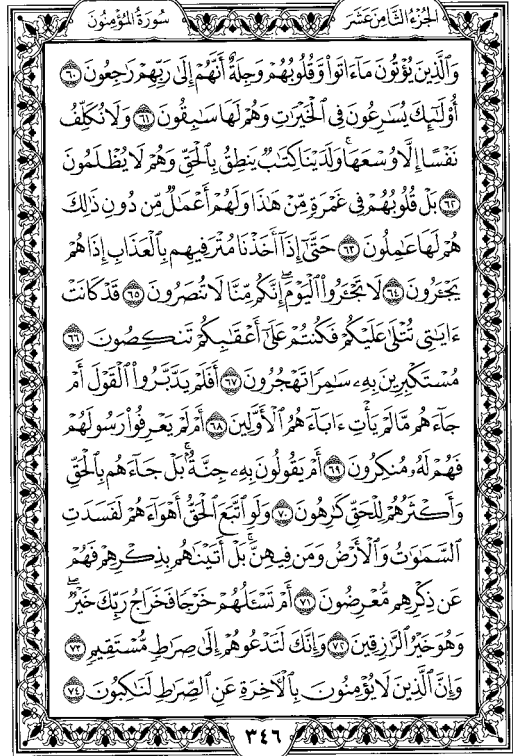 الجُزْءُ الثَّامِنَ عَشَرَ سُورَةُ المُؤْمِنُونَ
وَالَّذِينَ يُؤْتُونَ مَآ ءَاتَوا۟ وَّقُلُوبُهُمْ وَجِلَةٌ أَنَّهُمْ إِلَىٰ رَبِّهِمْ رَٰجِعُونَ ٦٠
أُو۟لَٰٓئِكَ يُسَٰرِعُونَ فِى ٱلْخَيْرَٰتِ وَهُمْ لَهَا سَٰبِقُونَ ٦١ وَلَا نُكَلِّفُ
نَفْسًا إِلَّا وُسْعَهَا ۚ وَلَدَيْنَا كِتَٰبٌ يَنطِقُ بِٱلْحَقِّ وَهُمْ لَا يُظْلَمُونَ
٦٢ بَلْ قُلُوبُهُمْ فِى غَمْرَةٍ مِّنْ هَٰذَا وَلَهُمْ أَعْمَٰلٌ مِّن دُونِ ذَٰلِكَ
هُمْ لَهَا عَٰمِلُونَ ٦٣ حَتَّىٰٓ إِذَآ أَخَذْنَا مُتْرَفِيهِم بِٱلْعَذَابِ إِذَا هُمْ
يَجْـَٔرُونَ ٦٤ لَا تَجْـَٔرُوا۟ ٱلْيَوْمَ ۖ إِنَّكُم مِّنَّا لَا تُنصَرُونَ ٦٥ قَدْ كَانَتْ
ءَايَٰتِى تُتْلَىٰ عَلَيْكُمْ فَكُنتُمْ عَلَىٰٓ أَعْقَٰبِكُمْ تَنكِصُونَ ٦٦
مُسْتَكْبِرِينَ بِهِۦ سَٰمِرًا تَهْجُرُونَ ٦٧ أَفَلَمْ يَدَّبَّرُوا۟ ٱلْقَوْلَ أَمْ
جَآءَهُم مَّا لَمْ يَأْتِ ءَابَآءَهُمُ ٱلْأَوَّلِينَ ٦٨ أَمْ لَمْ يَعْرِفُوا۟ رَسُولَهُمْ
فَهُمْ لَهُۥ مُنكِرُونَ ٦٩ أَمْ يَقُولُونَ بِهِۦ جِنَّةٌۢ ۚ بَلْ جَآءَهُم بِٱلْحَقِّ
وَأَكْثَرُهُمْ لِلْحَقِّ كَٰرِهُونَ ٧٠ وَلَوِ ٱتَّبَعَ ٱلْحَقُّ أَهْوَآءَهُمْ لَفَسَدَتِ
ٱلسَّمَٰوَٰتُ وَٱلْأَرْضُ وَمَن فِيهِنَّ ۚ بَلْ أَتَيْنَٰهُم بِذِكْرِهِمْ فَهُمْ
عَن ذِكْرِهِم مُّعْرِضُونَ ٧١ أَمْ تَسْـَٔلُهُمْ خَرْجًا فَخَرَاجُ رَبِّكَ خَيْرٌ ۖ
وَهُوَ خَيْرُ ٱلرَّٰزِقِينَ ٧٢ وَإِنَّكَ لَتَدْعُوهُمْ إِلَىٰ صِرَٰطٍ مُّسْتَقِيمٍ ٧٣
وَإِنَّ ٱلَّذِينَ لَا يُؤْمِنُونَ بِٱلْـَٔاخِرَةِ عَنِ ٱلصِّرَٰطِ لَنَٰكِبُونَ ٧٤
٣٤٦